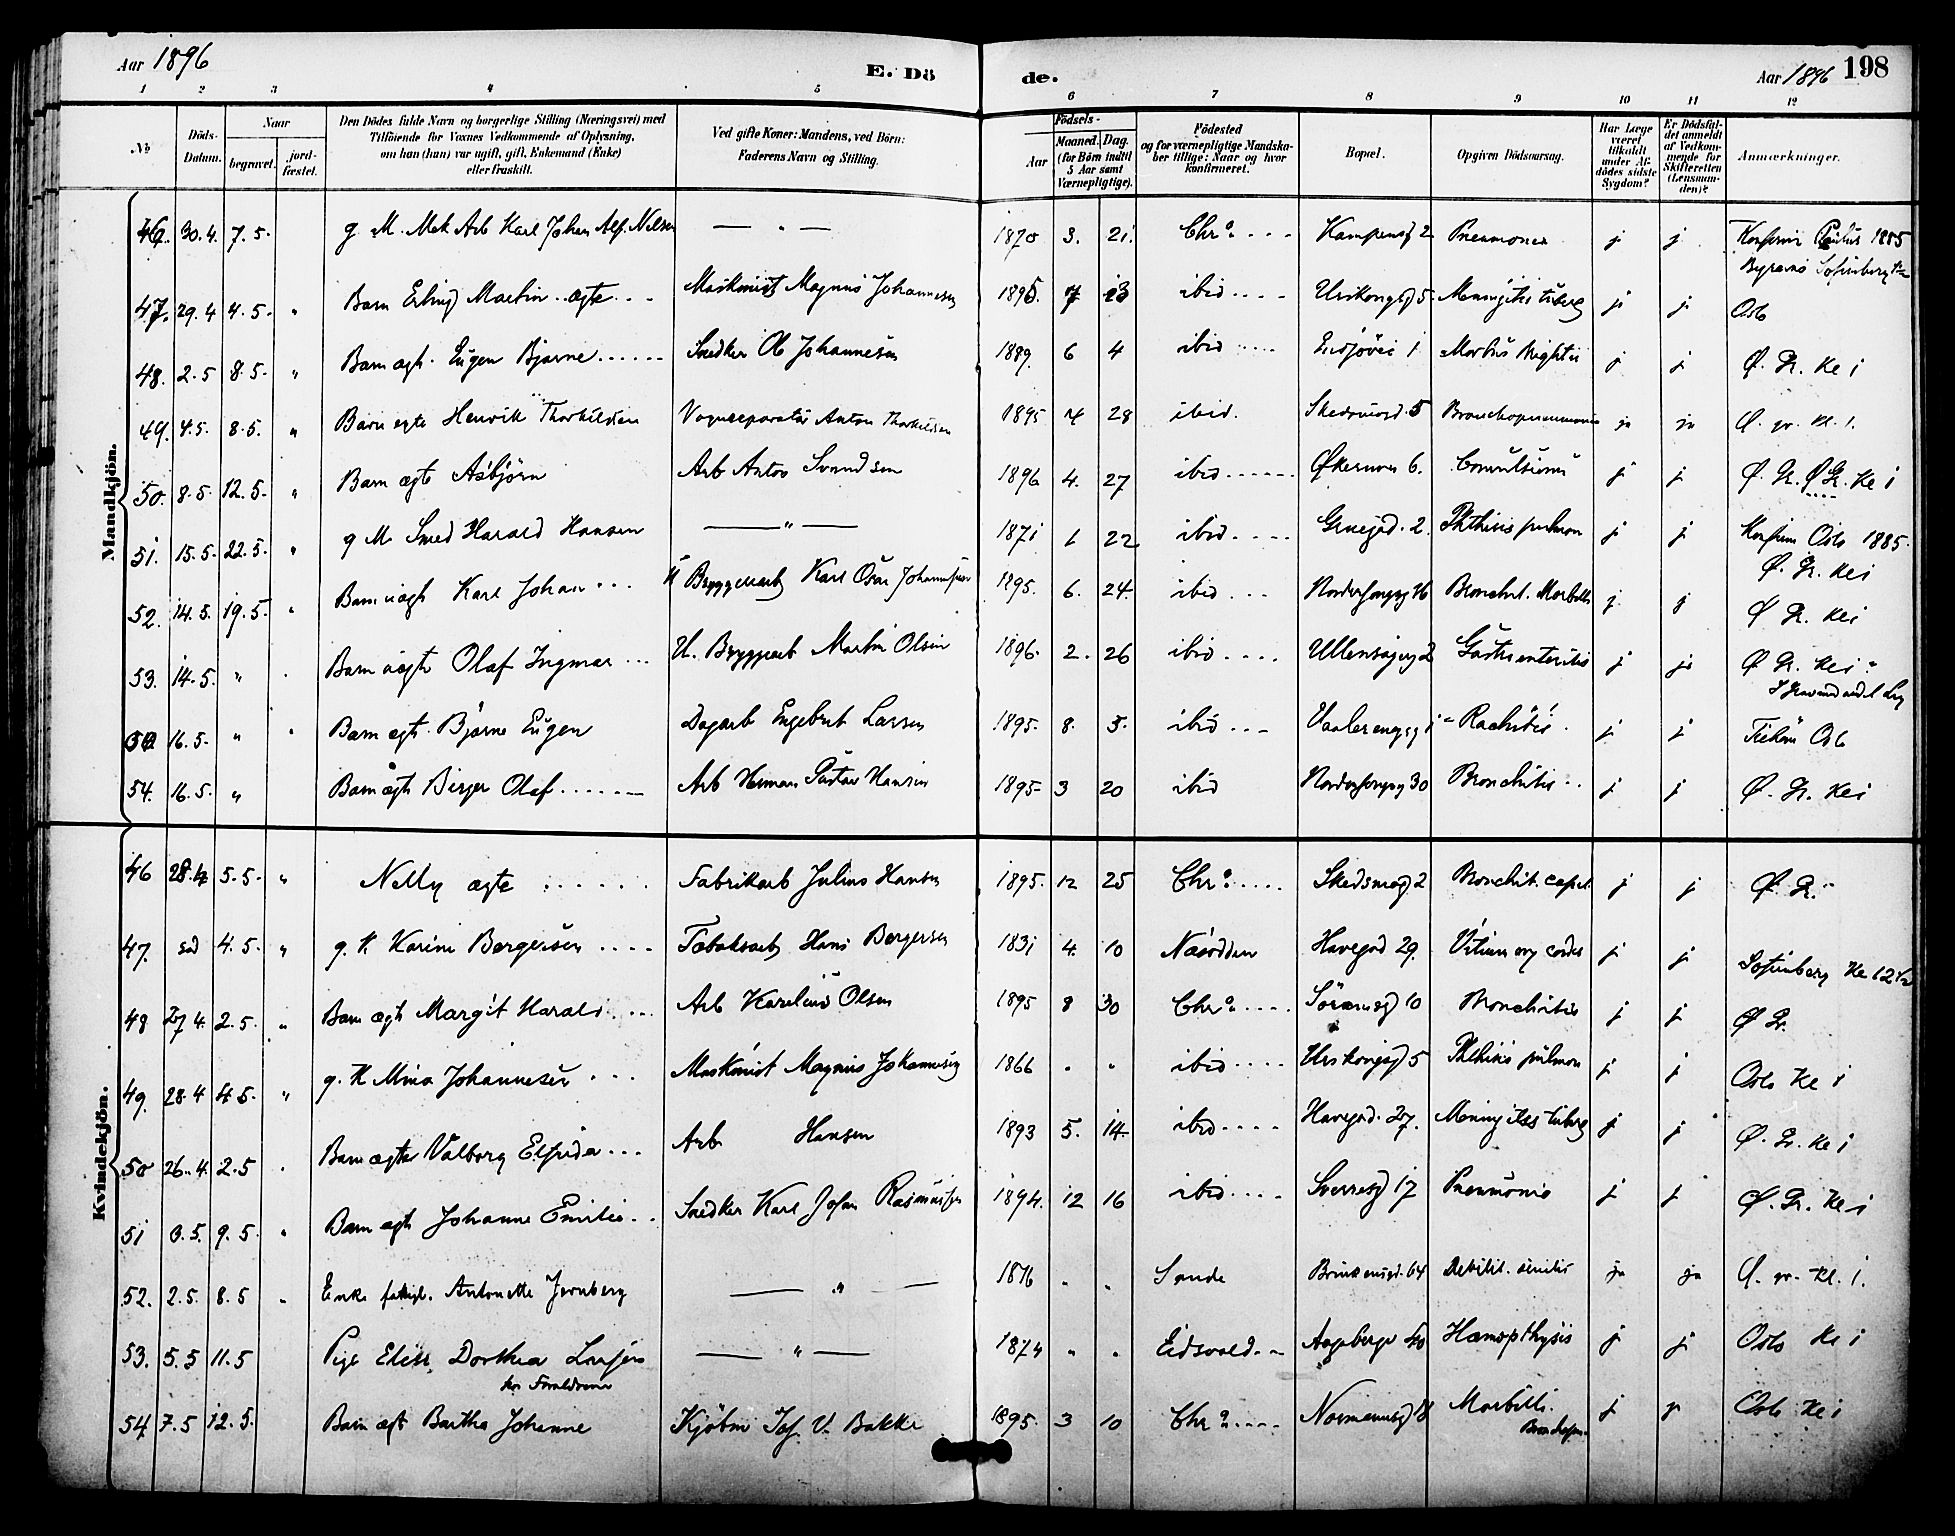 Aar 1896
E. Dö
de.
Aar 1896 198
1 2 3 4 5 6 7 8 9 10 11 12
No
Döds-Datum.
Naar
begravet.
jord-fæstet.
Den Dödes fulde Navn og borgerlige Stilling (Næringsvei) med
Tilföiende for Voxnes Vedkommende af Oplysning,
om han (hun) var ugift, gift, Enkemand (Enke)
eller fraskilt.
Ved gifte Koner: Mandens, ved Börn:
Faderens Navn og Stilling.
Födsels-
Aar
Maaned. Dag.
(for Börn indtil
5 Aar samt
Værnepligtige).
Födested
og for værnepligtige Mandska-
ber tillige: Naar og hvor
konfirmeret.
Bopæl.
Opgiven Dödsaarsag.
Har Læge
været
tilkaldt
under Af-
dödes sidste
Sygdom?
Er Dödsfal-
det anmeldt
af Vedkom-
mende for
Skifteretten
(Lensman-
den)?
Anmærkninger.
Mandkjön.
46. 30.4. 7.5. g. M. Mek Arb Karl Johan Alf. Nilsen — " — 1870 3. 21. Chra. Kampensg 2 Pneumonia j j Konfirm Paulus 1885
47. 29.4 4.5. " Barn Erling Martin ægte Maskinist Magnus Johannesen 1895. 7 23 ibid Urskougsg 5 Meningitis tuberc j j Oslo
48. 2.5 8.5. " Barn ægt. Eugen Bjarne Snedker Ole Johannesen 1889. 6 4 ibid 1 Morbus Brightii j j Ø. Gr. Kl 1
49. 4.5. 8.5. " Barn egte Henrik Thorkildsen Vognreparatør Anton Thorkildsen 1895 4 28 ibid. Skedsmogd. 5 Bronchopneumonia ja ja Ø. gr. kl. 1.
50. 8.5. 12.5. " Barn ægte Asbjörn Arb Anton Svendsen 1896 4. 27 ibid Økernvei 6. Convulsions j j Ø. Gr. Ø Gr. Kl 1
51. 15.5. 22.5. " g M Smed Harald Hansen — " — 1871 1 22 ibid Gruegd. 2. Phthisis pulmon j j Konfirm Oslo 1885. Ø. Gr. Kl 1
52. 14.5. 19.5. " Barn uægt Karl Johan Karl Oskar Johannesen 1895. 6. 24. ibid 16 Bronchit. Morbilli j. j Ø Gr. Kl 1
53. 14.5. " Barn uægte Olaf Ingmar U. Bryggearb Martin Olsen 1896. 2. 26 ibid Ullensagerg 2 Gastroenteritis j ja Ø Gr. Kl 1
16.5. " Barn ægt. Bjarne Eugen Dagarb Engebret Larsen 1895. 8. 5. ibid Vaalerenggg 1 Rachitis. j j Oslo
54. 16.5. " Barn ægt Birger Olaf Arb Herman Gustav Hansen 1895 3 20 ibid 30 Bronchitis j j Ø. Gr. Kl 1
Kvindekjön.
46 28.4 5.5. " Nelly ægte Fabrikarb Julius Hansen 1895. 12 25 Chra. Skedsmog. 2 Bronchit. capil. j j Ø. Gr.
47. 4.5. " g. K. Karine Bergersen Tobaksarb Hans Bergersen 1831 4. 10 Næsodden Havegd 29. Vitium org cordis j j Sofienberg Kl 12½
48 27 4. 2.5. " Barn ægt Margit Harald Arb Karelius Olsen 1895 8 30 Chra. 10 Bronchitis j j Ø Gr.
49. 28.4 4.5. " g. K Mina Johannesen Maskinist Magnus Johannesen 1866 " " ibid Urskougsg 5 Phthisis pulmon j j Oslo Kl 1
50 26.4. 2.5 " Barn ægte Valborg Elfrida Arb Hansen 1893 5. 14. ibid Havegd. 27. Meningitis tuberc j j Ø. Gr. Kl 1
51 3.5. 9.5. " Barn ægt Johanne Emilie Snedker Karl Johan Rasmussen 1894. 12 16 ibid Sverresg 17 Pneumonia j j Ø. Gr. Kl 1
52. 2.5. 8.5 " Enke Antonette Jernberg — " — 1816 " " Sande 64 Debilit. senilis ja ja Ø. gr. kl. 1.
53. 5.5 11.5 Pige Elise Dorthea Larsen
hos Forældrene — " — 1874 " " Eidsvold Aagebergv 40 Hæmopthysis j j Oslo Kl 1
54 7.5 12.5. Barn ægt Bertha Johanne Kjøbm Bakke 1895. 3 10 Chra. Normannsg 18 Morbilli. j j Oslo Kl 1